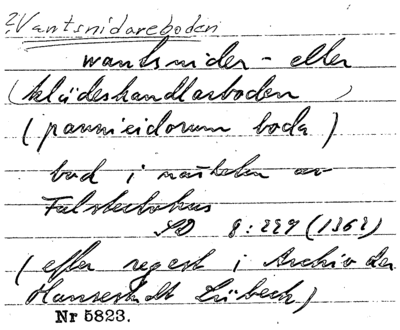 ? Vantsnidareboden
wantsnider- eller
(klädeshandlarboden)
(pannicidorum boda)
bod i av
Falsterbohus
SD 8:229 (1362)
(efter regest i Archiv der
Hansestadt Lübeck)
Nr 5823.